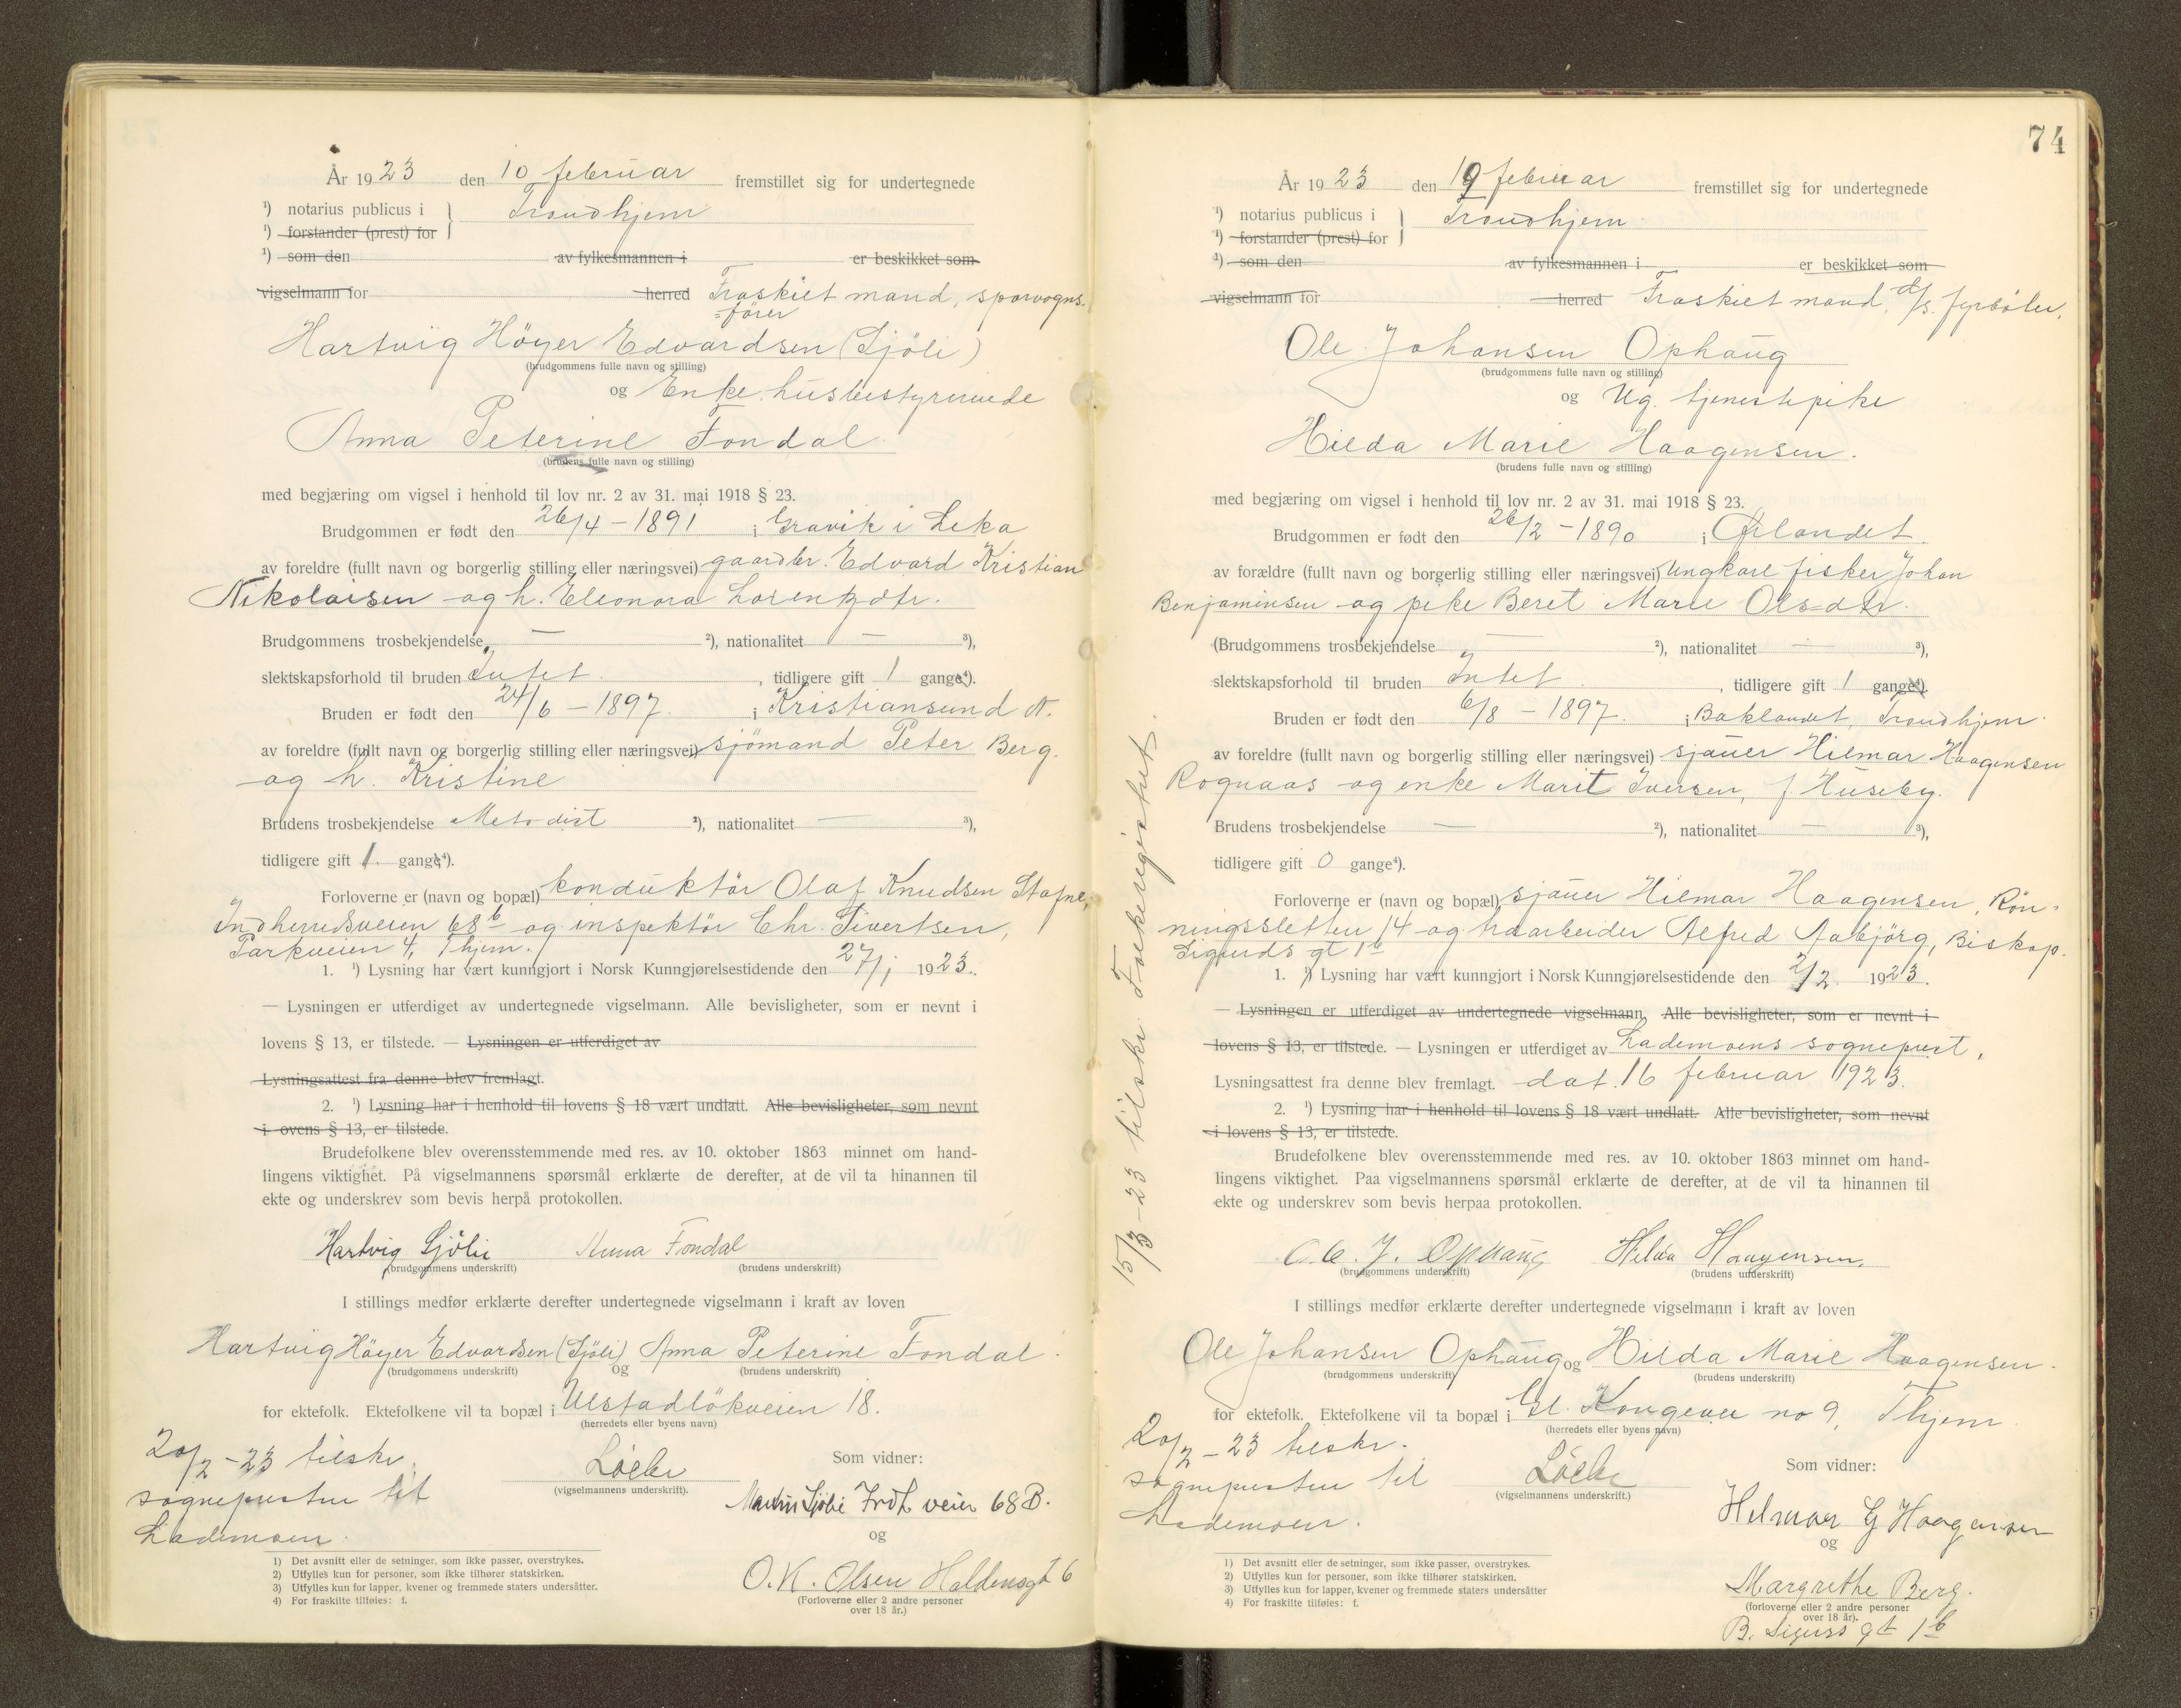 År 1923 den 10 februar fremstillet sig for undertegnede
¹) notarius publicus i } Trondhjem
¹) forstander (prest) for
¹) som den av fylkesmannen i er beskikket som
vigselmann for herred Fraskilt mand, sporvogns-
=fører
Hartvig Höyer Edvardsen (Sjöli)
(brudgommens fulle navn og stilling)
og Enke, husbestyrerinde
Anna Peterine Fondal
(brudens fulle navn og stilling)
med begjæring om vigsel i henhold til lov nr. 2 av 31. mai 1918 § 23.
Brudgommen er født den 26/4 - 1891 i Gravik i Leka
av foreldre (fullt navn og borgerlig stilling eller næringsvei) gaardbr. Edvard Kristian
Nikolaisen og h. Eleonora Lorentzdtr.
Brudgommens trosbekjendelse — ²), nationalitet — ³),
slektskapsforhold til bruden Intet , tidligere gift 1 gange⁴).
Bruden er født den 24/6 - 1897 i Kristiansund N.
av foreldre (fullt navn og borgerlig stilling eller næringsvei) sjömand Peter Berg.
og h. Kristine
Brudens trosbekjendelse Metodist ²), nationalitet — ³),
tidligere gift 1. gange⁴).
Forloverne er (navn og bopæl) konduktör Olaf Knudsen Stafne,
Indherredsveien 68b og inspektör Chr. Sivertsen,
Parkveien 4, Thjem.
1. ¹) Lysning har vært kunngjort i Norsk Kunngjørelsestidende den 27/1 1923.
— Lysningen er utferdiget av undertegnede vigselmann. Alle bevisligheter, som er nevnt i
lovens § 13, er tilstede. — Lysningen er utferdiget av
Lysningsattest fra denne blev fremlagt.
2. ¹) Lysning har i henhold til lovens § 18 vært undlatt. Alle bevisligheter, som nevnt
i ovens § 13, er tilstede.
Brudefolkene blev overensstemmende med res. av 10. oktober 1863 minnet om hand-
lingens viktighet. På vigselmannens spørsmål erklærte de derefter, at de vil ta hinannen til
ekte og underskrev som bevis herpå protokollen.
Hartvig Sjölie Anna Fondal
(brudgommens underskrift) (brudens underskrift)
I stillings medfør erklærte derefter undertegnede vigselmann i kraft av loven
Hartvig Höyer Edvardsen (Sjöli) og Anna Peterine Fondal.
(brudgommens underskrift) (brudens underskrift)
for ektefolk. Ektefolkene vil ta bopæl i Ulstadlökveien 18.
(herredets eller byens navn)
20/2 - 23 tilskr.
sognepresten til
Lademoen.
(vigselmannens underskrift).
Som vidner:
Martin Sjölie Indh veien 68B.
og
O. K. Olsen Haldensgt 6
(Forloverne eller 2 andre personer
over 18 år.)
1) Det avsnitt eller de setninger, som ikke passer, overstrykes.
2) Utfylles kun for personer, som ikke tilhører statskirken.
3) Utfylles kun for lapper, kvener og fremmede staters undersåtter.
4) For fraskilte tilføies: f.
74
År 1923 den 19 februar fremstillet sig for undertegnede
¹) notarius publicus i } Trondhjem
¹) forstander (prest) for
¹) som den av fylkesmannen i er beskikket som
vigselmann for herred Fraskilt mand, d/s. fyrböter,
Ole Johansen Ophaug
(brudgommens fulle navn og stilling)
og Ug. tjenestepike
Hilda Marie Haagensen.
(brudens fulle navn og stilling)
med begjæring om vigsel i henhold til lov nr. 2 av 31. mai 1918 § 23.
Brudgommen er født den 26/2 - 1890 i Ørlandet.
av forældre (fullt navn og borgerlig stilling eller næringsvei) Ungkarl fisker Johan
Benjaminsen og pike Beret Marie Olsdtr.
(Brudgommens trosbekjendelse — ²), nationalitet — ³),
slektskapsforhold til bruden Intet , tidligere gift 1 gange⁴).
Bruden er født den 6/8 - 1897. i Baklandet, Trondhjem.
av foreldre (fullt navn og borgerlig stilling eller næringsvei) sjauer Hilmar Haagensen
Rognaas og enke Marit Iversen, f. Huseby.
Brudens trosbekjendelse — ²), nationalitet — ³),
tidligere gift 0 gange⁴).
Forloverne er (navn og bopæl) sjauer Hilmar Haagensen, Rön-
ningssletten 14 og traarbeider Alfred Aabjörg, Biskop
Sigurds gt 1b
1. ¹) Lysning har vært kunngjort i Norsk Kunngjørelsestidende den 2/2 1923.
— Lysningen er utferdiget av undertegnede vigselmann. Alle bevisligheter, som er nevnt i
lovens § 13, er tilstede. — Lysningen er utferdiget av Lademoens sogneprest,
Lysningsattest fra denne blev fremlagt. dat. 16 februar 1923.
2. ¹) Lysning har i henhold til lovens § 18 vært undlatt. Alle bevisligheter, som nevnt
i lovens § 13, er tilstede.
Brudefolkene blev overensstemmende med res. av 10. oktober 1863 minnet om hand-
lingens viktighet. Paa vigselmannens spørsmål erklærte de derefter, at de vil ta hinannen til
ekte og underskrev som bevis herpaa protokollen.
Ole. J. Ophaug Hilda Haagensen.
(brudgommens underskrift) (brudens underskrift)
I stillings medfør erklærte derefter undertegnede vigselmann i kraft av loven
Ole Johansen Ophaug og Hilda Marie Haagensen.
(brudgommens underskrift) (brudens underskrift)
for ektefolk. Ektefolkene vil ta bopæl i Gl. Kongevei no 9, Thjem
(herredets eller byens navn)
20/2 - 23 tilskr.
sognepresten til
Lademoen.
(vigselmannens underskrift.)
Som vidner:
Helmar G Haagensen
og
Margrethe Berg.
(forloverne eller 2 andre personer
over 18 år).
B. Sigurds gt 1b
1) Det avsnitt eller de setninger, som ikke passer, overstrykes.
2) Utfylles kun for personer, som ikke tilhører statskirken.
3) Utfylles kun for lapper, kvener og fremmede staters undersåtter
4) For fraskilte tilføies: f.
15/3 - 23 tilskr. Folkeregistret.